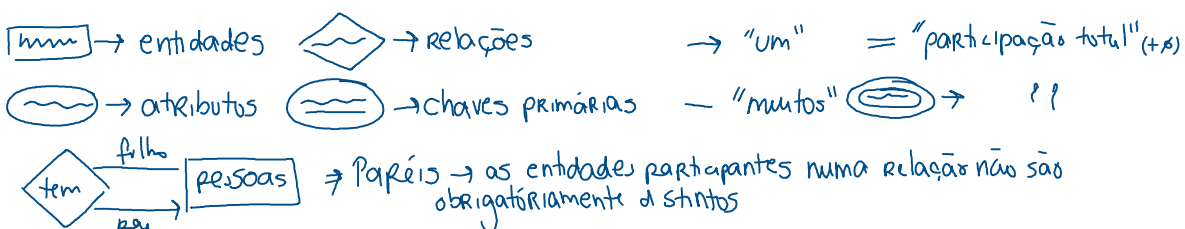 → entidades → Relações → "um" = "participação total" (+∅)
→ atributos → chaves primárias — "muitos" → ''
filho
tem pessoas ⇒ Papéis → as entidades participantes numa relação não são
obrigatóriamente distintos
pai